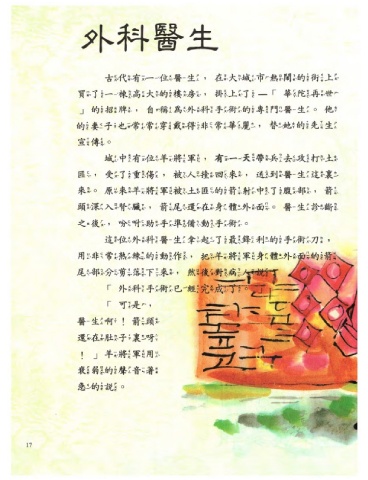 外科醫生
古代有一位醫生，在大城市熱鬧的街上
買了一棟高大的樓房，掛上了—「華陀再世
」的招牌，自稱為外科手術的專門醫生。他
的妻子也常常穿戴得非常華麗，替她的先生
宣傳。
城中有位羊將軍，有一天帶兵去攻打土
匪，受了重傷，被人擡回來，送到醫生這裏
來。原來羊將軍被土匪的箭射中了腹部，箭
頭深入腎臟，箭尾還在身體外面。醫生診斷
之後，吩咐助手準備動手術。
這位外科醫生拿起了最鋒利的手術刀，
用非常熟練的動作，把羊將軍身體外面的箭
尾部分剪落下來，然後對病人說：
「外科手術已經完成了。」
「可是，
醫生啊！箭頭
還在肚子裏呀
！」羊將軍用
衰弱的聲音著
急的說。
17